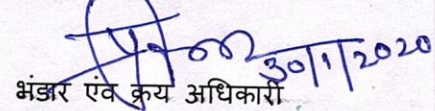 30/1/2020
भंडार एंव क्रय अधिकारी